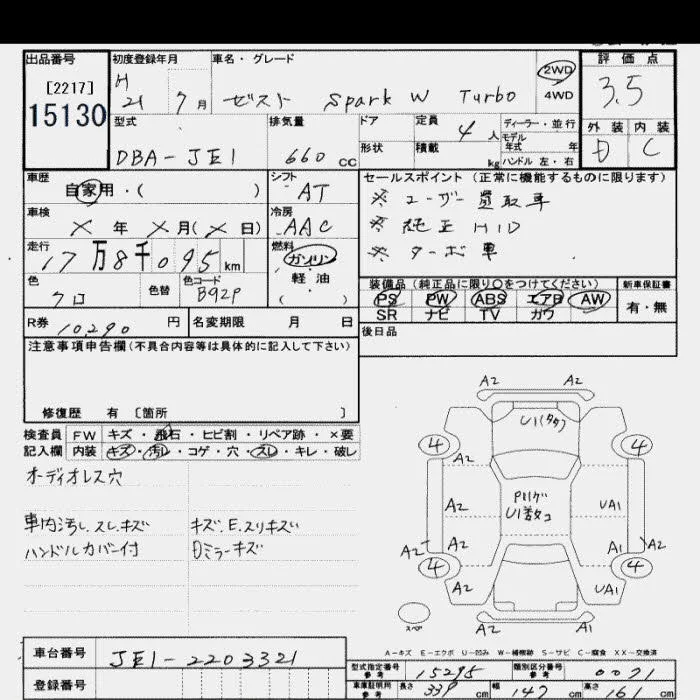 出品番号
[2217]
15130
初度登録年月
H
21 7 月
車名・グレード
ゼスト Spark W Turbo
2WD
4WD
評価点
3.5
外装 内装
D C
型式
DBA-JE1
排気量
660 cc
ドア
形状
定員
4 人
積載
kg
ディーラー・並行
モデル
年式 年
ハンドル 左・右
車歴
自家用・( )
シフト
AT
車検
× 年 × 月(× 日)
冷房
AAC
走行
17万8千095 km
燃料
ガソリン
軽油
( )
色
クロ
色替
色コード
B92P
セールスポイント (正常に機能するものに限ります)
※ ユーザー買取車
※ 純正 HID
※ ターボ車
装備品 (純正品に限り○をつけてください)
PS PW ABS エアB AW
SR ナビ TV ガワ
新車保証書
有・無
R券 10,290 円
名変期限 月 日
後日品
注意事項申告欄(不具合内容等は具体的に記入して下さい)
修復歴 有 〔箇所 〕
検査員
記入欄
FW キズ・飛石・ヒビ割・リペア跡・×要
内装 キズ・汚れ・コゲ・穴・スレ・キレ・破し
オーディオレス穴
車内汚し、スレ、キズ キズ、E、スリキズい
ハンドルカバー付 Dミラーキズ
A2 A2
U1(タタ)
4 4
A2
A2 UA1
U1数コ
A2 A2 A1 A2
4 4
A2 UA1
スペア
A2 A1
A-キズ E-エクボ U-凹み W-補修跡 S-サビ C-腐食 XX-交換済
車台番号
JE1-2203321
登録番号
型式指定番号
参考
15295
類別区分番号
参考
0071
車庫証明用
参考
長さ 339 cm 幅 147 cm 高さ 161 cm